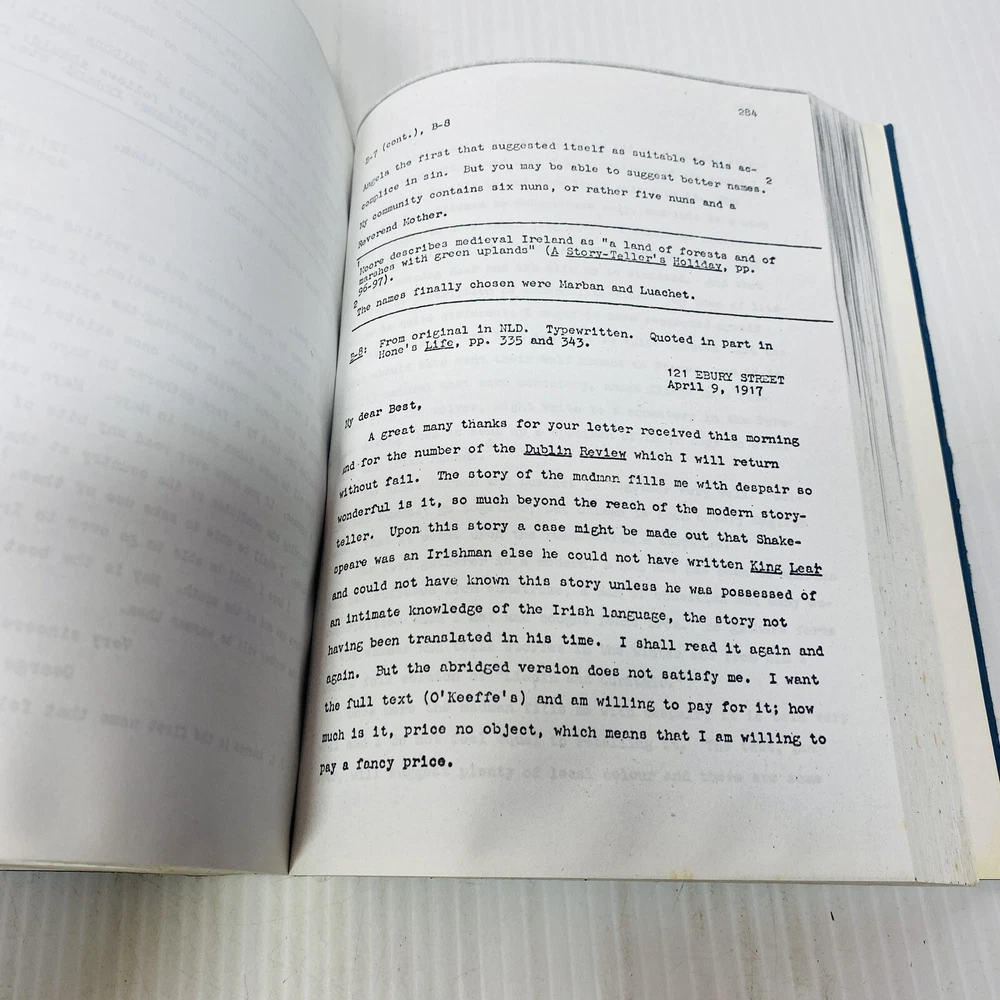 284
B-7 (cont.), B-8
Angela the first that suggested itself as suitable to his ac- 2
complice in sin. But you may be able to suggest better names.
My community contains six nuns, or rather five nuns and a
Reverend Mother.
1
Moore describes medieval Ireland as "a land of forests and of
marshes with green uplands" (A Story-Teller's Holiday, pp.
96-97).
2
The names finally chosen were Marban and Luachet.
B-8: From original in NLD. Typewritten. Quoted in part in
Hone's Life, pp. 335 and 343.
121 EBURY STREET
April 9, 1917
My dear Best,
A great many thanks for your letter received this morning
and for the number of the Dublin Review which I will return
without fail. The story of the madman fills me with despair so
wonderful is it, so much beyond the reach of the modern story-
teller. Upon this story a case might be made out that Shake-
speare was an Irishman else he could not have written King Lear
and could not have known this story unless he was possessed of
an intimate knowledge of the Irish language, the story not
having been translated in his time. I shall read it again and
again. But the abridged version does not satisfy me. I want
the full text (O'Keeffe's) and am willing to pay for it; how
much is it, price no object, which means that I am willing to
pay a fancy price.